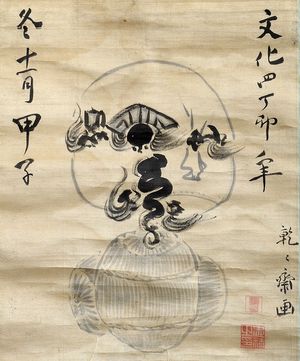 文化四丁卯年
乾〻齋画
冬十一月甲子